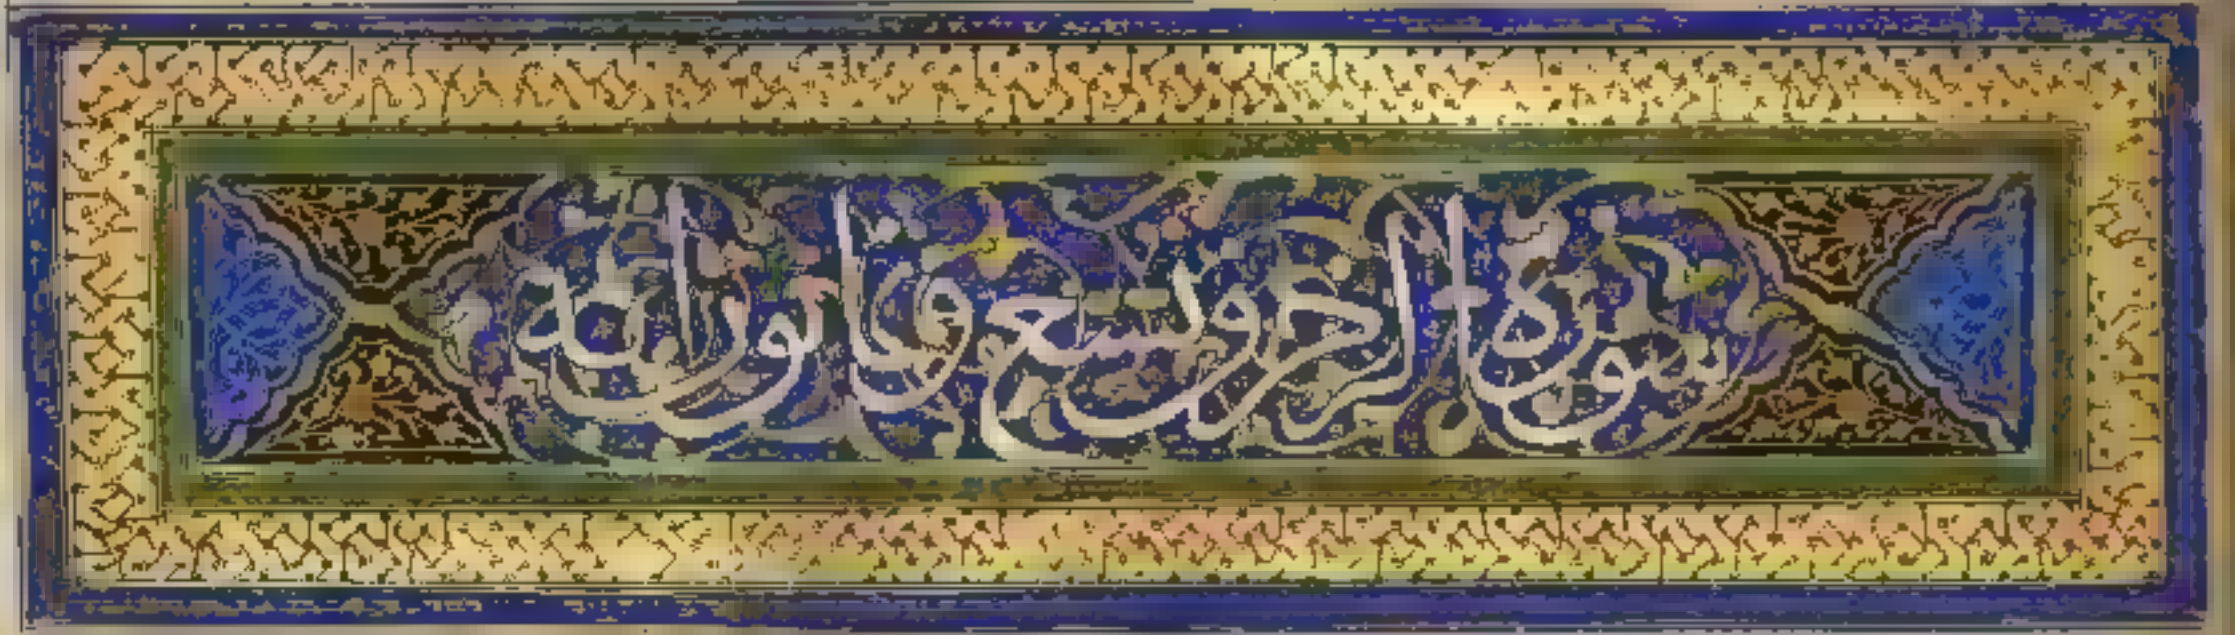 سورة الزخرف تسع وثمانون اية